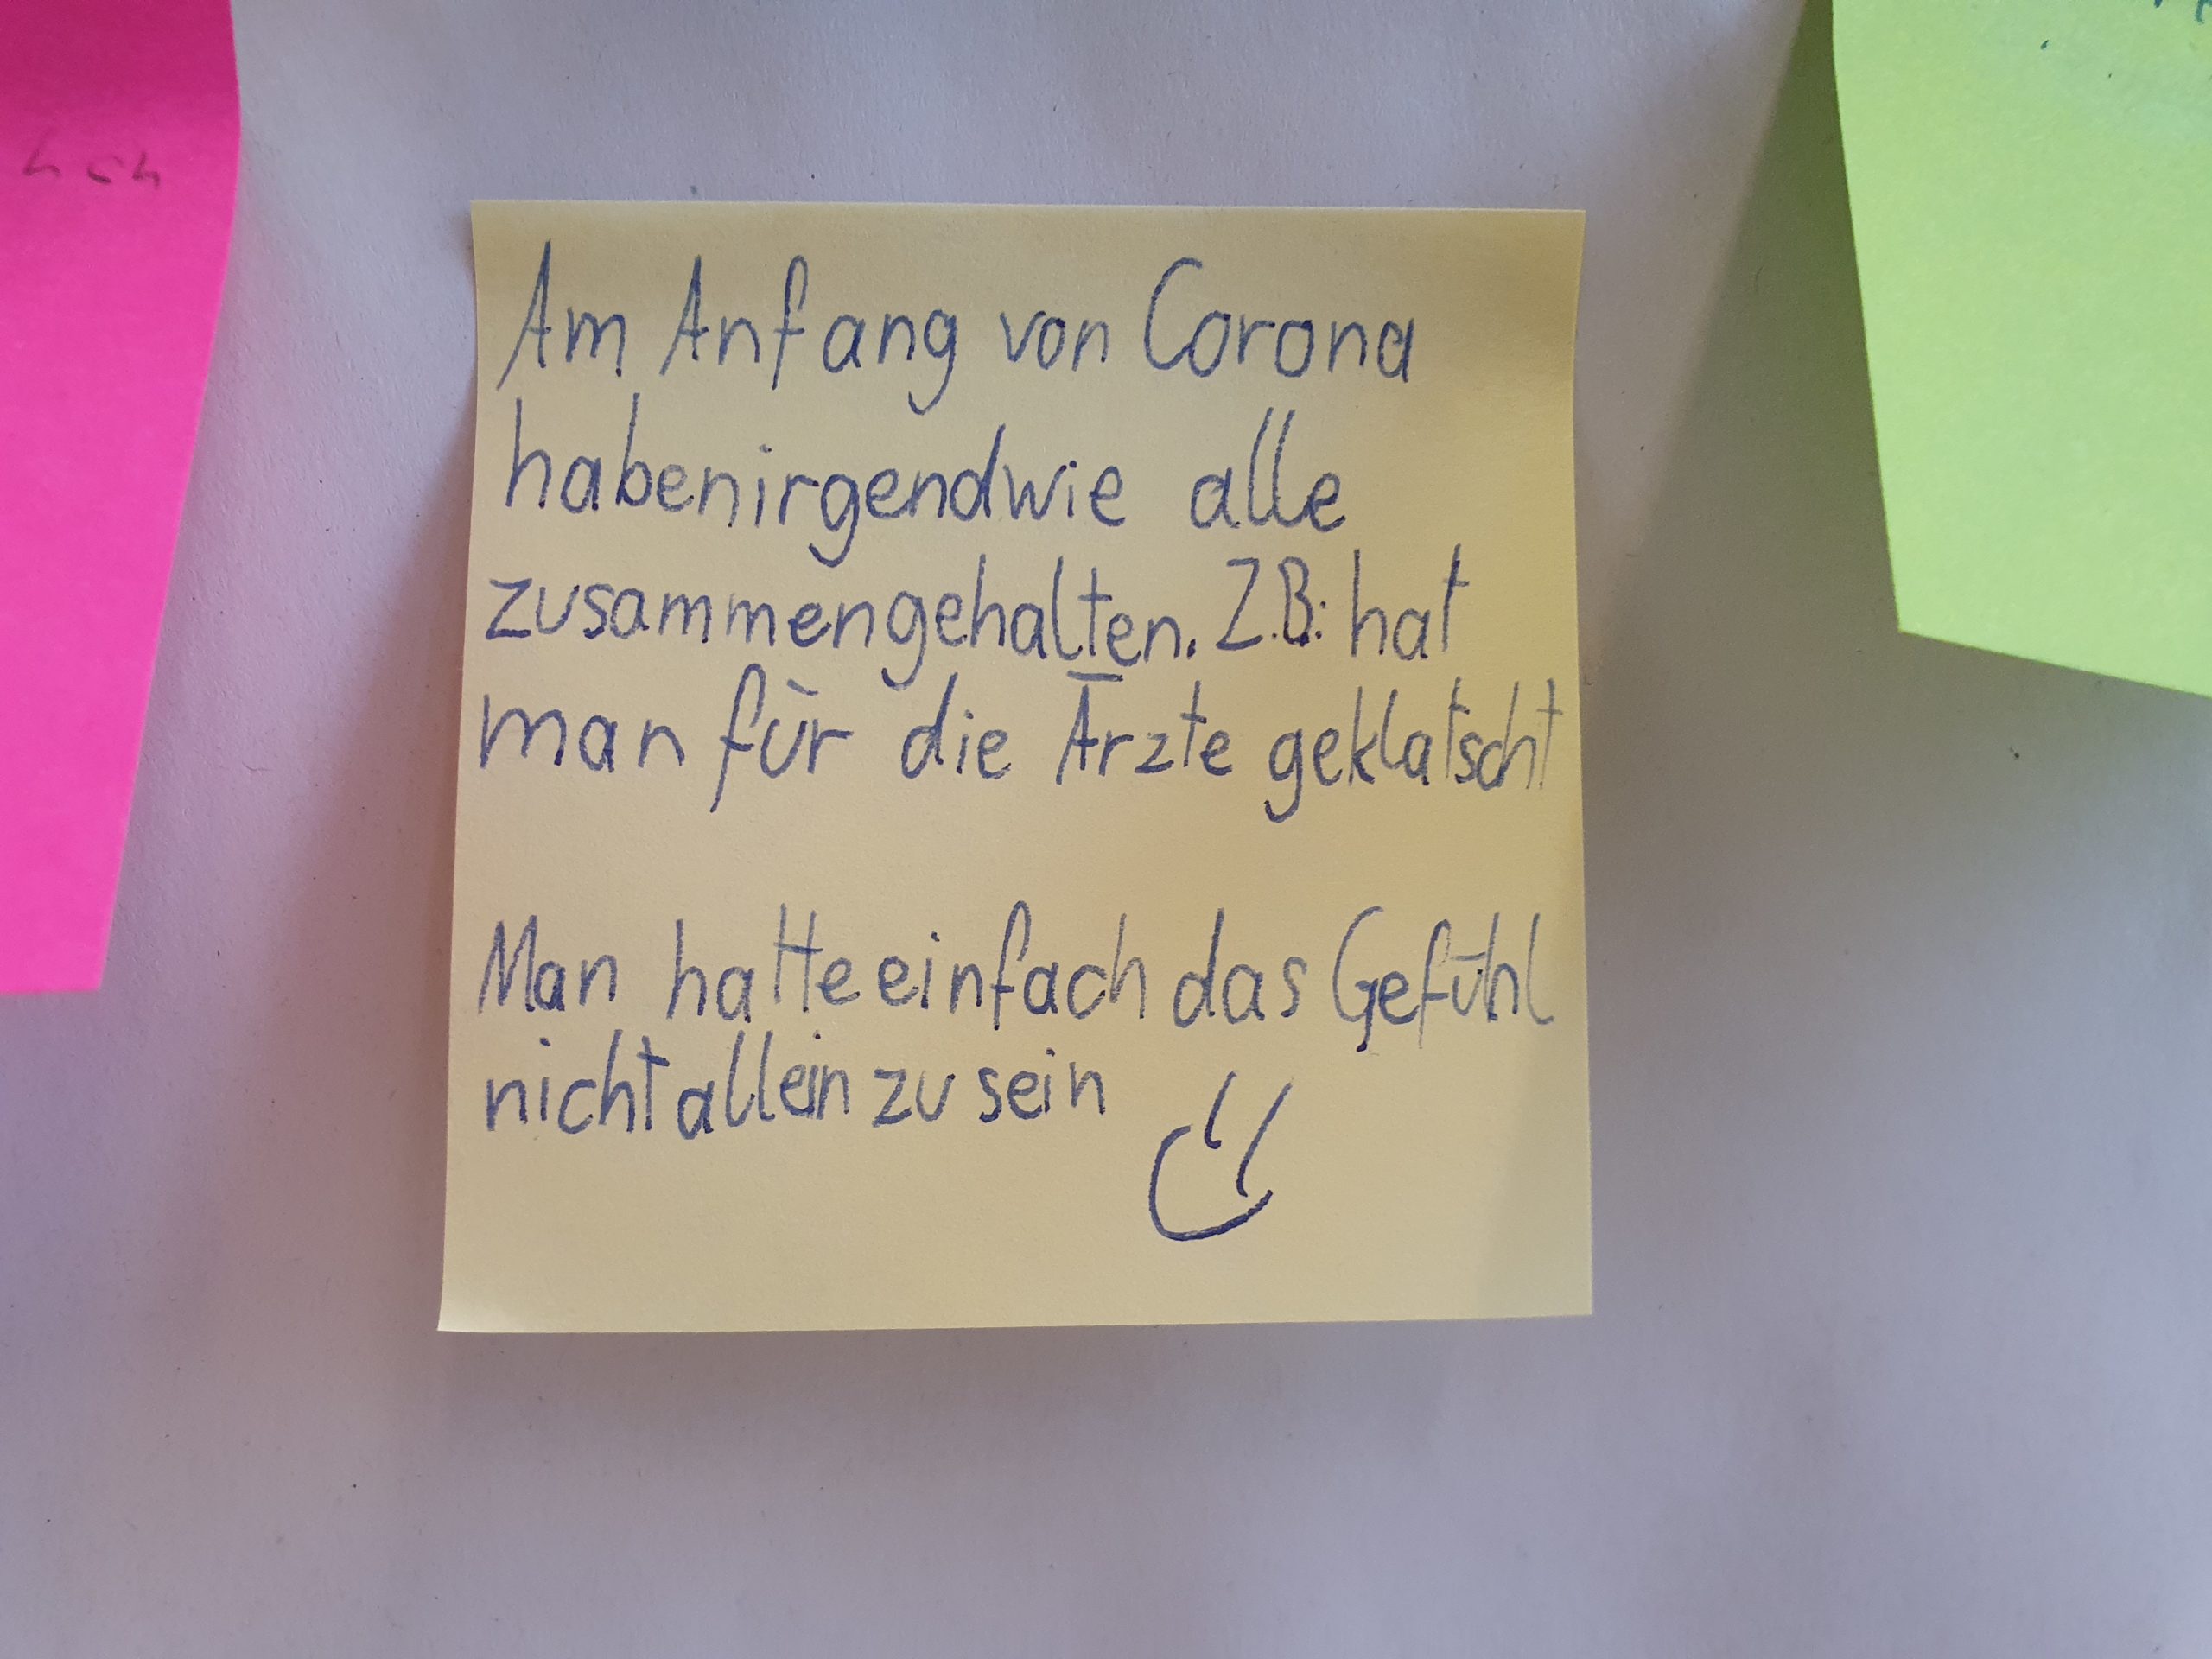 Am Anfang von Corona
haben irgendwie alle
zusammengehalten. Z.B.: hat
man für die Ärzte geklatscht.
Man hatte einfach das Gefühl
nicht allein zu sein